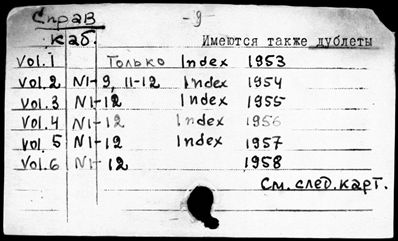 Справ - 9 -
каб. Имеются также дублеты
Vol. 1 Только Index 1953
Vol. 2 N1-9, 11-12 Index 1954
Vol. 3 N1-12 Index 1955
Vol. 4 N1-12 Index 1956
Vol. 5 N1-12 Index 1957
Vol. 6 N1-12 1958
См. след. карт.